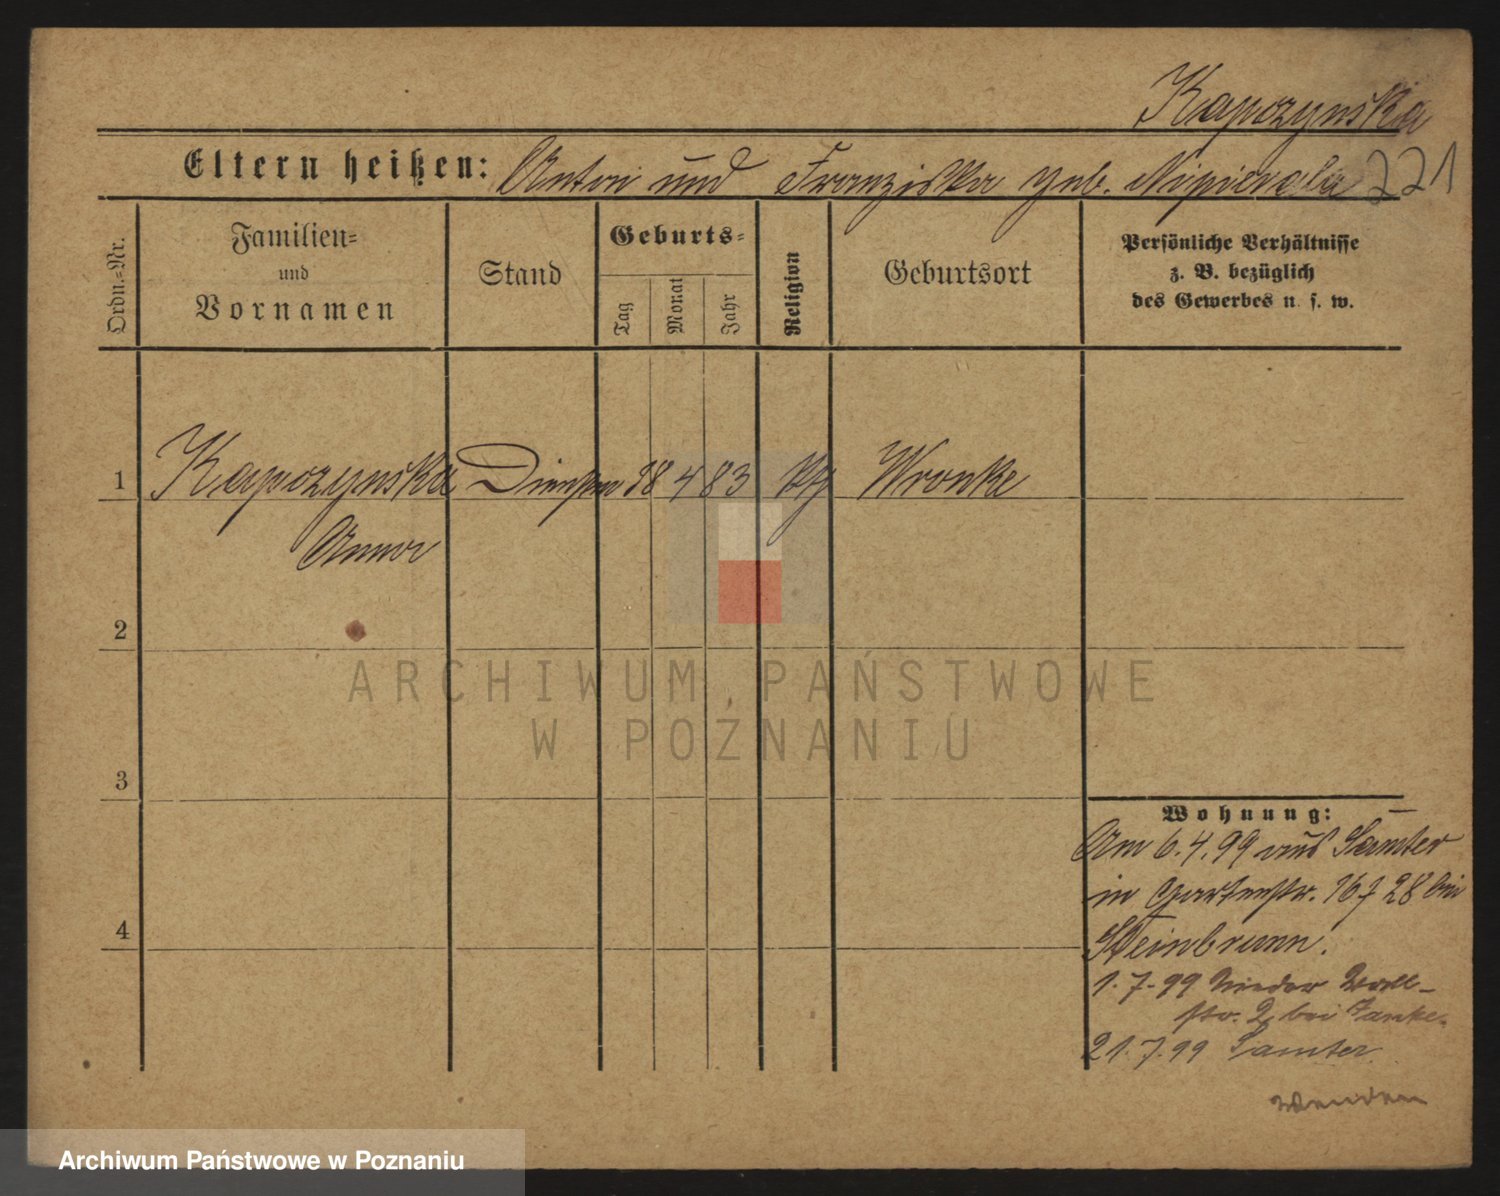 Kapczynska
Eltern heißen: Anton und Franziska geb. Nipierala 221
Ordn.=Nr.
Familien=
und
Vornamen
Stand
Geburts=
Tag
Monat
Jahr
Religion
Geburtsort
Persönliche Verhältnisse
z. B. bezüglich
des Gewerbes u. s. w.
1 Kapczynska 18 4 83 Wronke
Anna
2
3
4
Wohnung:
Am 6.4.99 aus Samter
in Gartenstr. 28 bei
Steinbrunn.
1.7.99 Nieder Wall-
str. 2 bei
21.7.99 Samter
wenden
ARCHIWUM PAŃSTWOWE
W POZNANIU
Archiwum Państwowe w Poznaniu